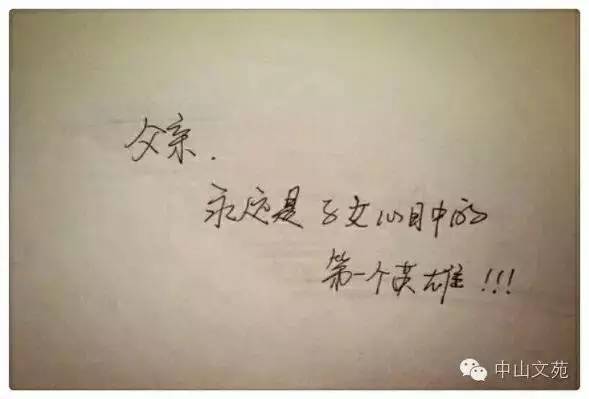 父亲.
永远是子女心目中的
第一个英雄!!!
中山文苑